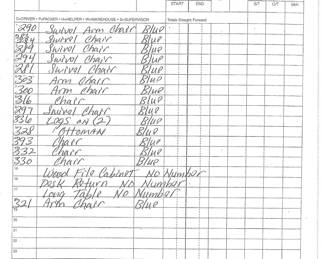 START END S/T O/T M/H
D=DRIVER • P=PACKER • H=HELPER • W=WAREHOUSE • S=SUPERVISOR Totals Brought Forward
290 Swivel Arm Chair Blue
384 Swivel Chair Blue
289 Swivel Chair Blue
294 Swivel Chair Blue
281 Swivel Chair Blue
303 Arm Chair Blue
300 Arm Chair Blue
316 Chair Blue
297 Swivel Chair Blue
336 (2) Blue
328 Ottoman Blue
393 Chair Blue
332 Chair Blue
330 Chair Blue
15 Wood File Cabinet No Number
16 Desk Return No Number
17 Long Table No Number
321 Arm Chair Blue
19
20
21
22
23